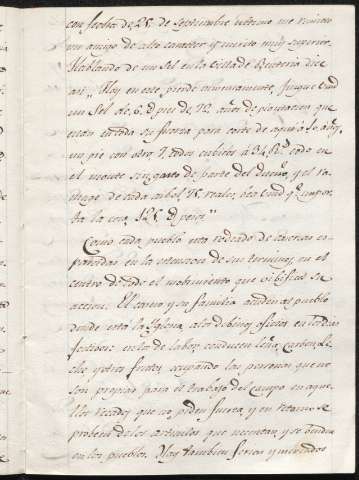 con fecha de 25 de Septiembre ultimo me
un amigo de alto caracter y merito muy superior.
Hablando de un Sel en la Villa de Renteria dice
asi "Hoy en este
un Sel de 6 pies de 12 años de plantacion que
estan en toda su fuerza para corte de aqui á 10 añ.
un pie con otro 7 codos cubicos á 3 codo en
el monte sin gasto de parte del dueño, y el ra-
mage de cada arbol 75 reales,
ta la 125 pesos"
Como cada pueblo esta rodeado de caserias es-
parcidas en la estension de su termino, en el
centro de todo el movimiento que vibifica su
accion. El casero y su familia acuden al pueblo
donde esta la Yglesia a los debinos oficios en los dias
festibos: en los de labor conducen leña, carbon, le-
che y otros frutos, ocupando las personas que no
son propias para el trabajo del campo en aque-
llos recados que no piden fuerza, y en retorno se
probeen de los articulos que necesitan, y se benden
en los pueblos. Hay tambien ferias y mercados